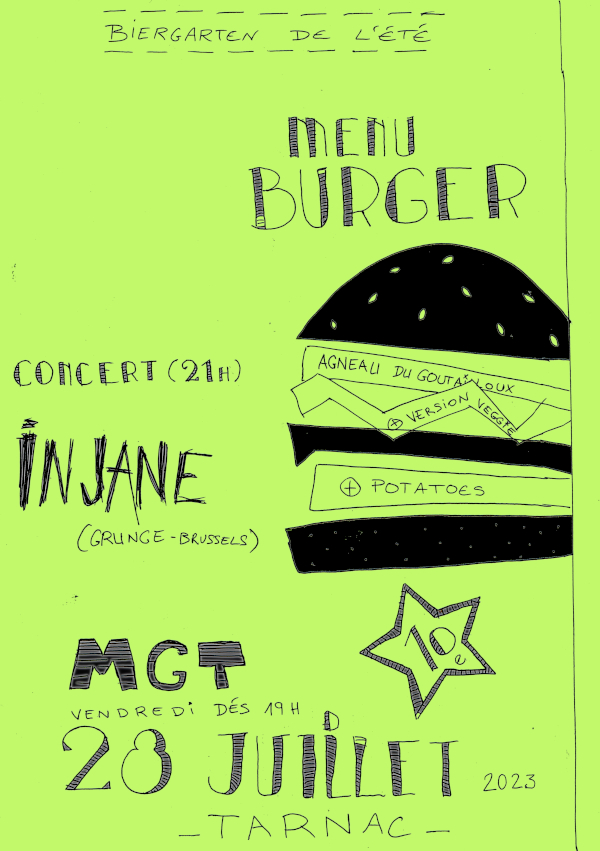 BIERGARTEN DE L'ÉTÉ
MENU
BURGER
AGNEAU DU GOUTAÏLOUX
⊕ VERSION VEGGIE
CONCERT (21H)
INJANE
⊕ POTATOES
(GRUNGE - BRUSSELS)
10e
MGT
VENDREDI DÉS 19H
28 JUILLET 2023
_ TARNAC _